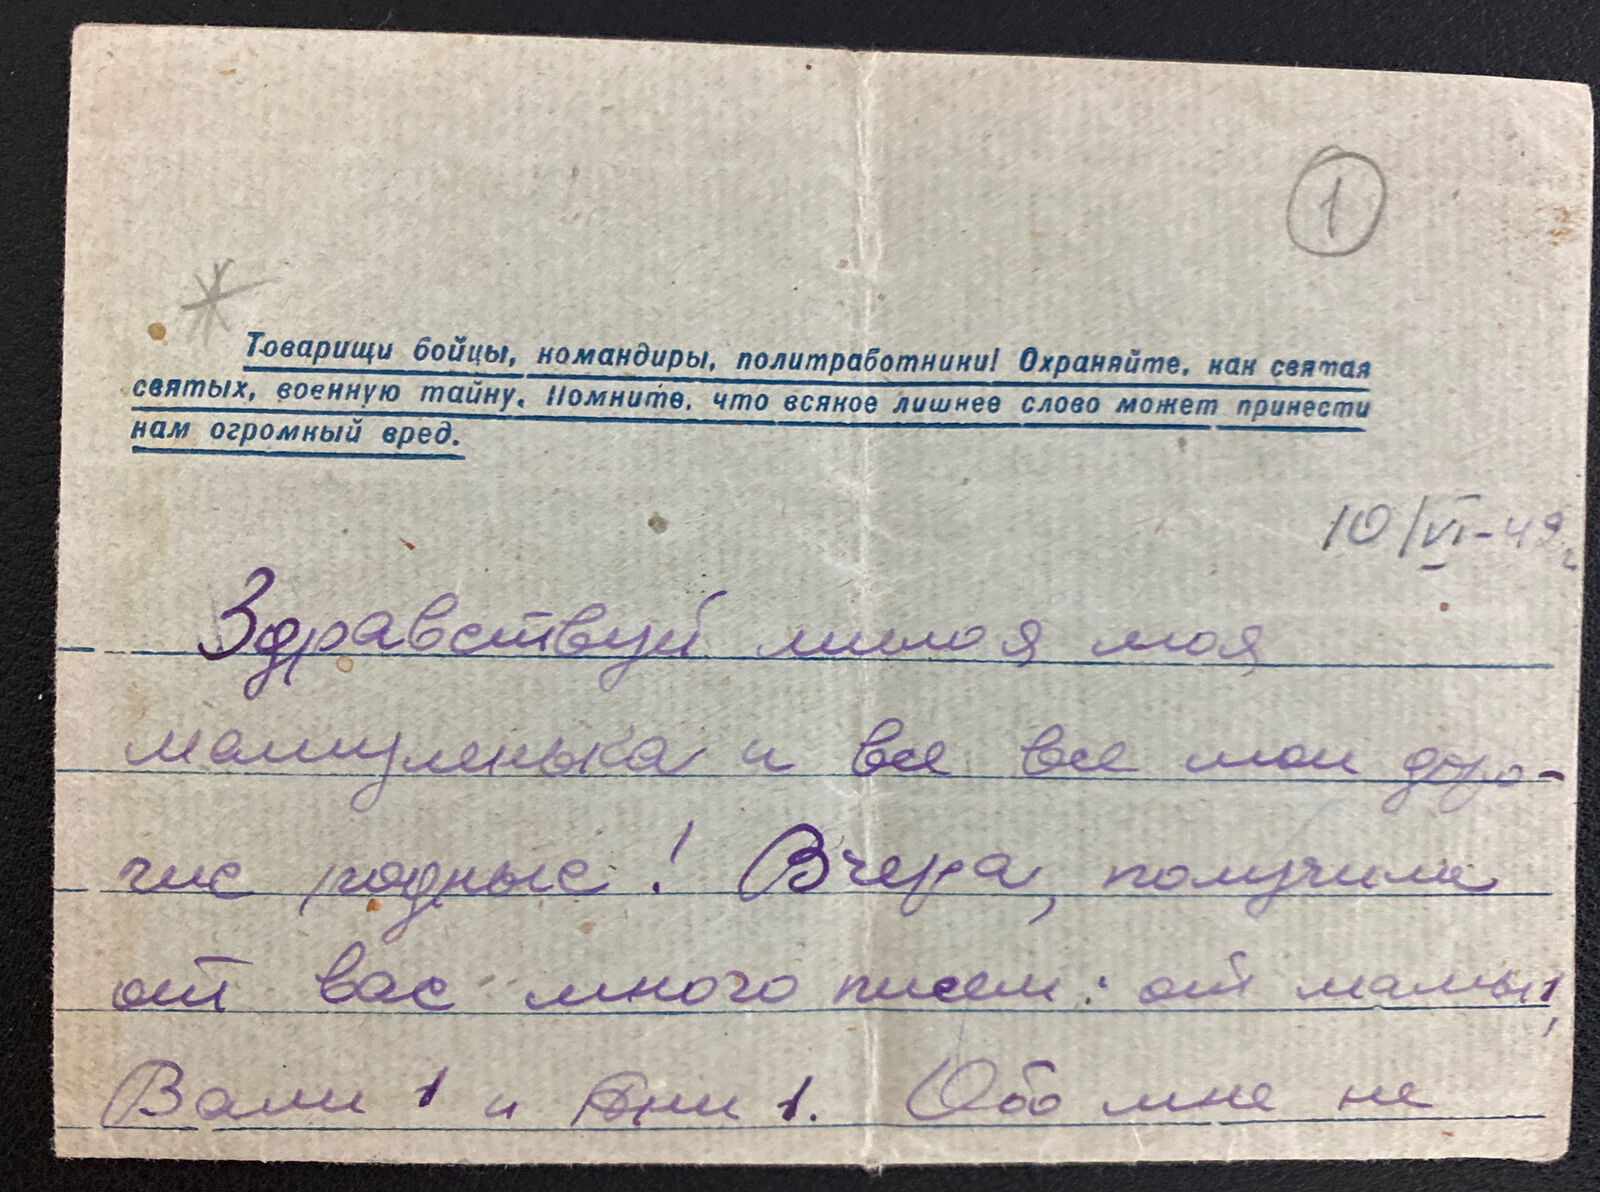 1
Товарищи бойцы, командиры, политработники! Охраняйте, как святая
святых, военную тайну. Помните, что всякое лишнее слово может принести
нам огромный вред.
10/VI-42г
Здравствуй милая моя
мамуленька и все все мои доро-
гие родные! Вчера, получила
от вас много писем: от мамы 1,
Вали 1 и Ани 1. Обо мне не